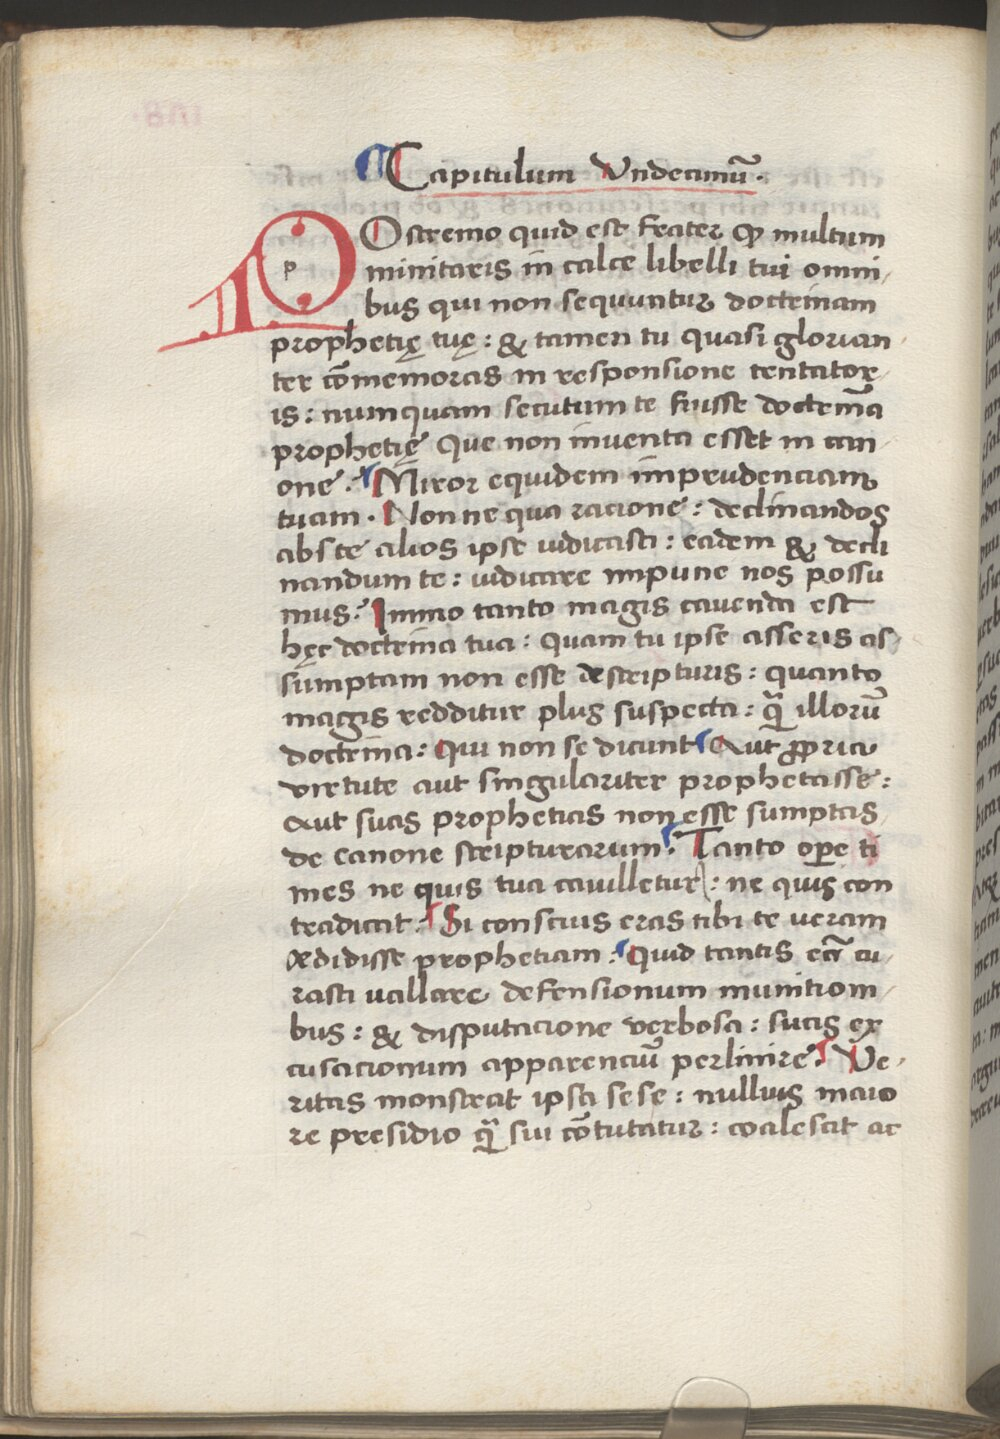 ¶ Capitulum Vndecimū.
POstremo quid est frater ꝙ multum
minitaris in calce libelli tui omni-
bus qui non sequuntur doctrinam
prophetię tuę: & tamen tu quasi glorian-
ter cōmemoras in responsione tentator-
is: numquam secutum te fuisse doctrinā
prophetię que non inventa esset in can-
one. Miror equidem imprudenciam
tuam. Nonne qua racione: declinandos
abs te alios ipse iudicasti: eadem & decli
nandum te: iudicare impune nos possu
mus? Immo tanto magis cauenda est
hęc doctrina tua: quam tu ipse asseris as-
sumptam non esse de scripturis: quanto
magis redditur plus suspecta: ꝙ̄ illorū
doctrina: qui non se dicunt aut ꝓpria
virtute aut singulariter prophetasse:
aut suas prophetias non esse sumptas
de canone scripturarum. Tanto oꝑe ti
mes ne quis tua cauilletur: ne quis con
tradicat. Si conscius eras tibi te veram
ædidisse prophetiam: Quid tantis etiā cu-
rasti uallare defensionum munition-
bus: & disputacione verbosa: suas ex
cusacionum apparenciū perlinire? Ve-
ritas monstrat ipsa sese: nullius maio
re presidio ꝙ̄ sui cōtutatur: coalescit ac